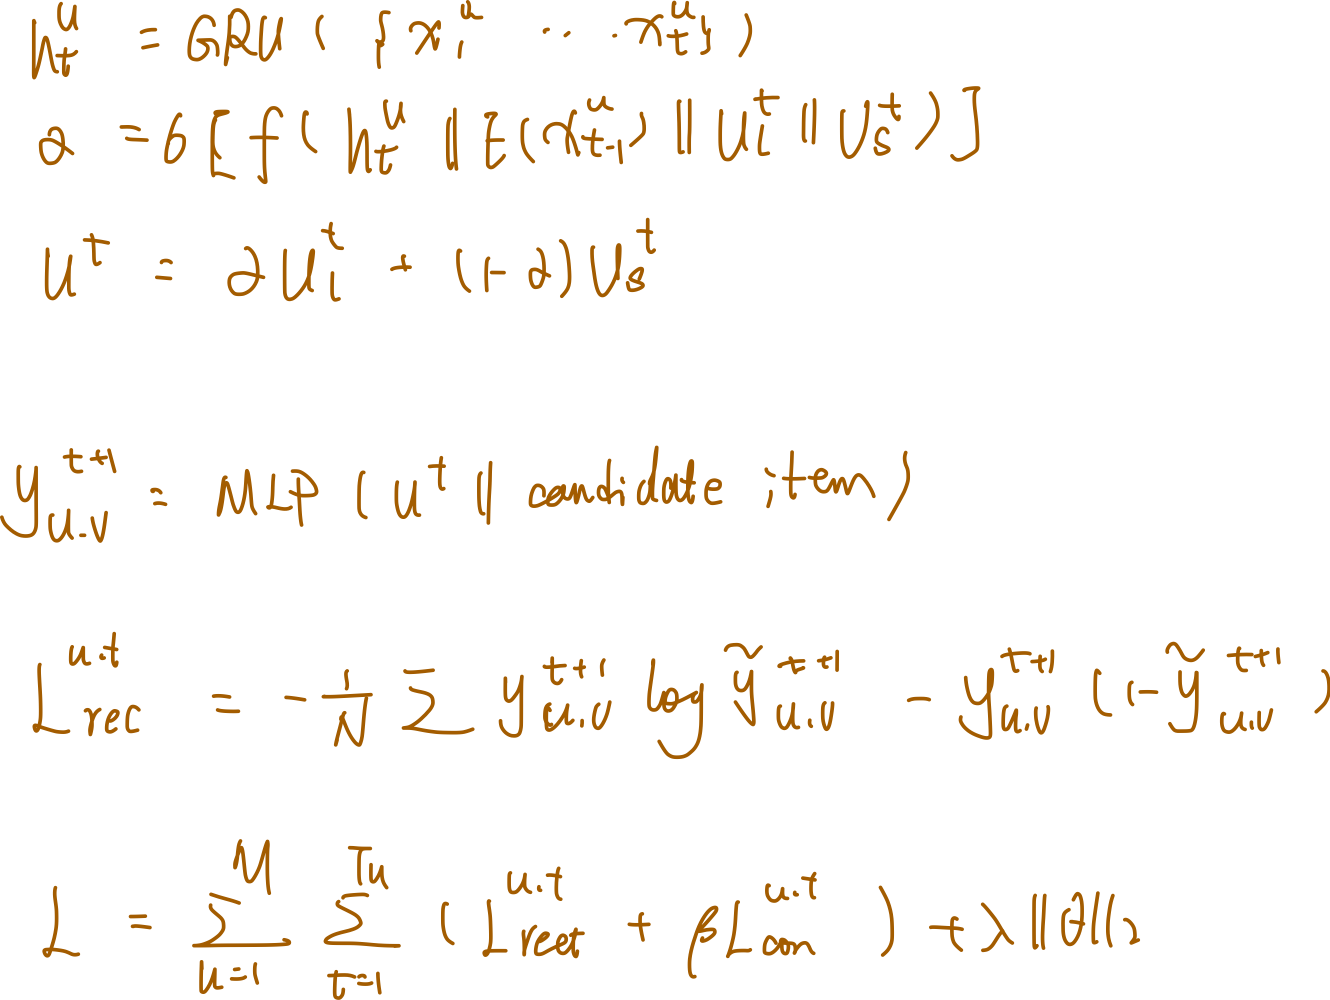 h_t^u = GRU ( { x_1^u ... x_t^u } )
α = σ [ f ( h_t^u || E(x_{t-1}^u) || U_l^t || U_s^t ) ]
U^t = α U_l^t + (1-α) U_s^t
y_{u.v}^{t+1} = MLP ( U^t || candidate item )
L_{rec}^{u.t} = - 1/N Σ y_{u.v}^{t+1} log ỹ_{u.v}^{t+1} - y_{u.v}^{t+1} (1 - ỹ_{u.v}^{t+1} )
L = Σ_{u=1}^{M} Σ_{t=1}^{Tu} ( L_{rect}^{u.t} + β L_{con}^{u.t} ) + λ ||θ||_2